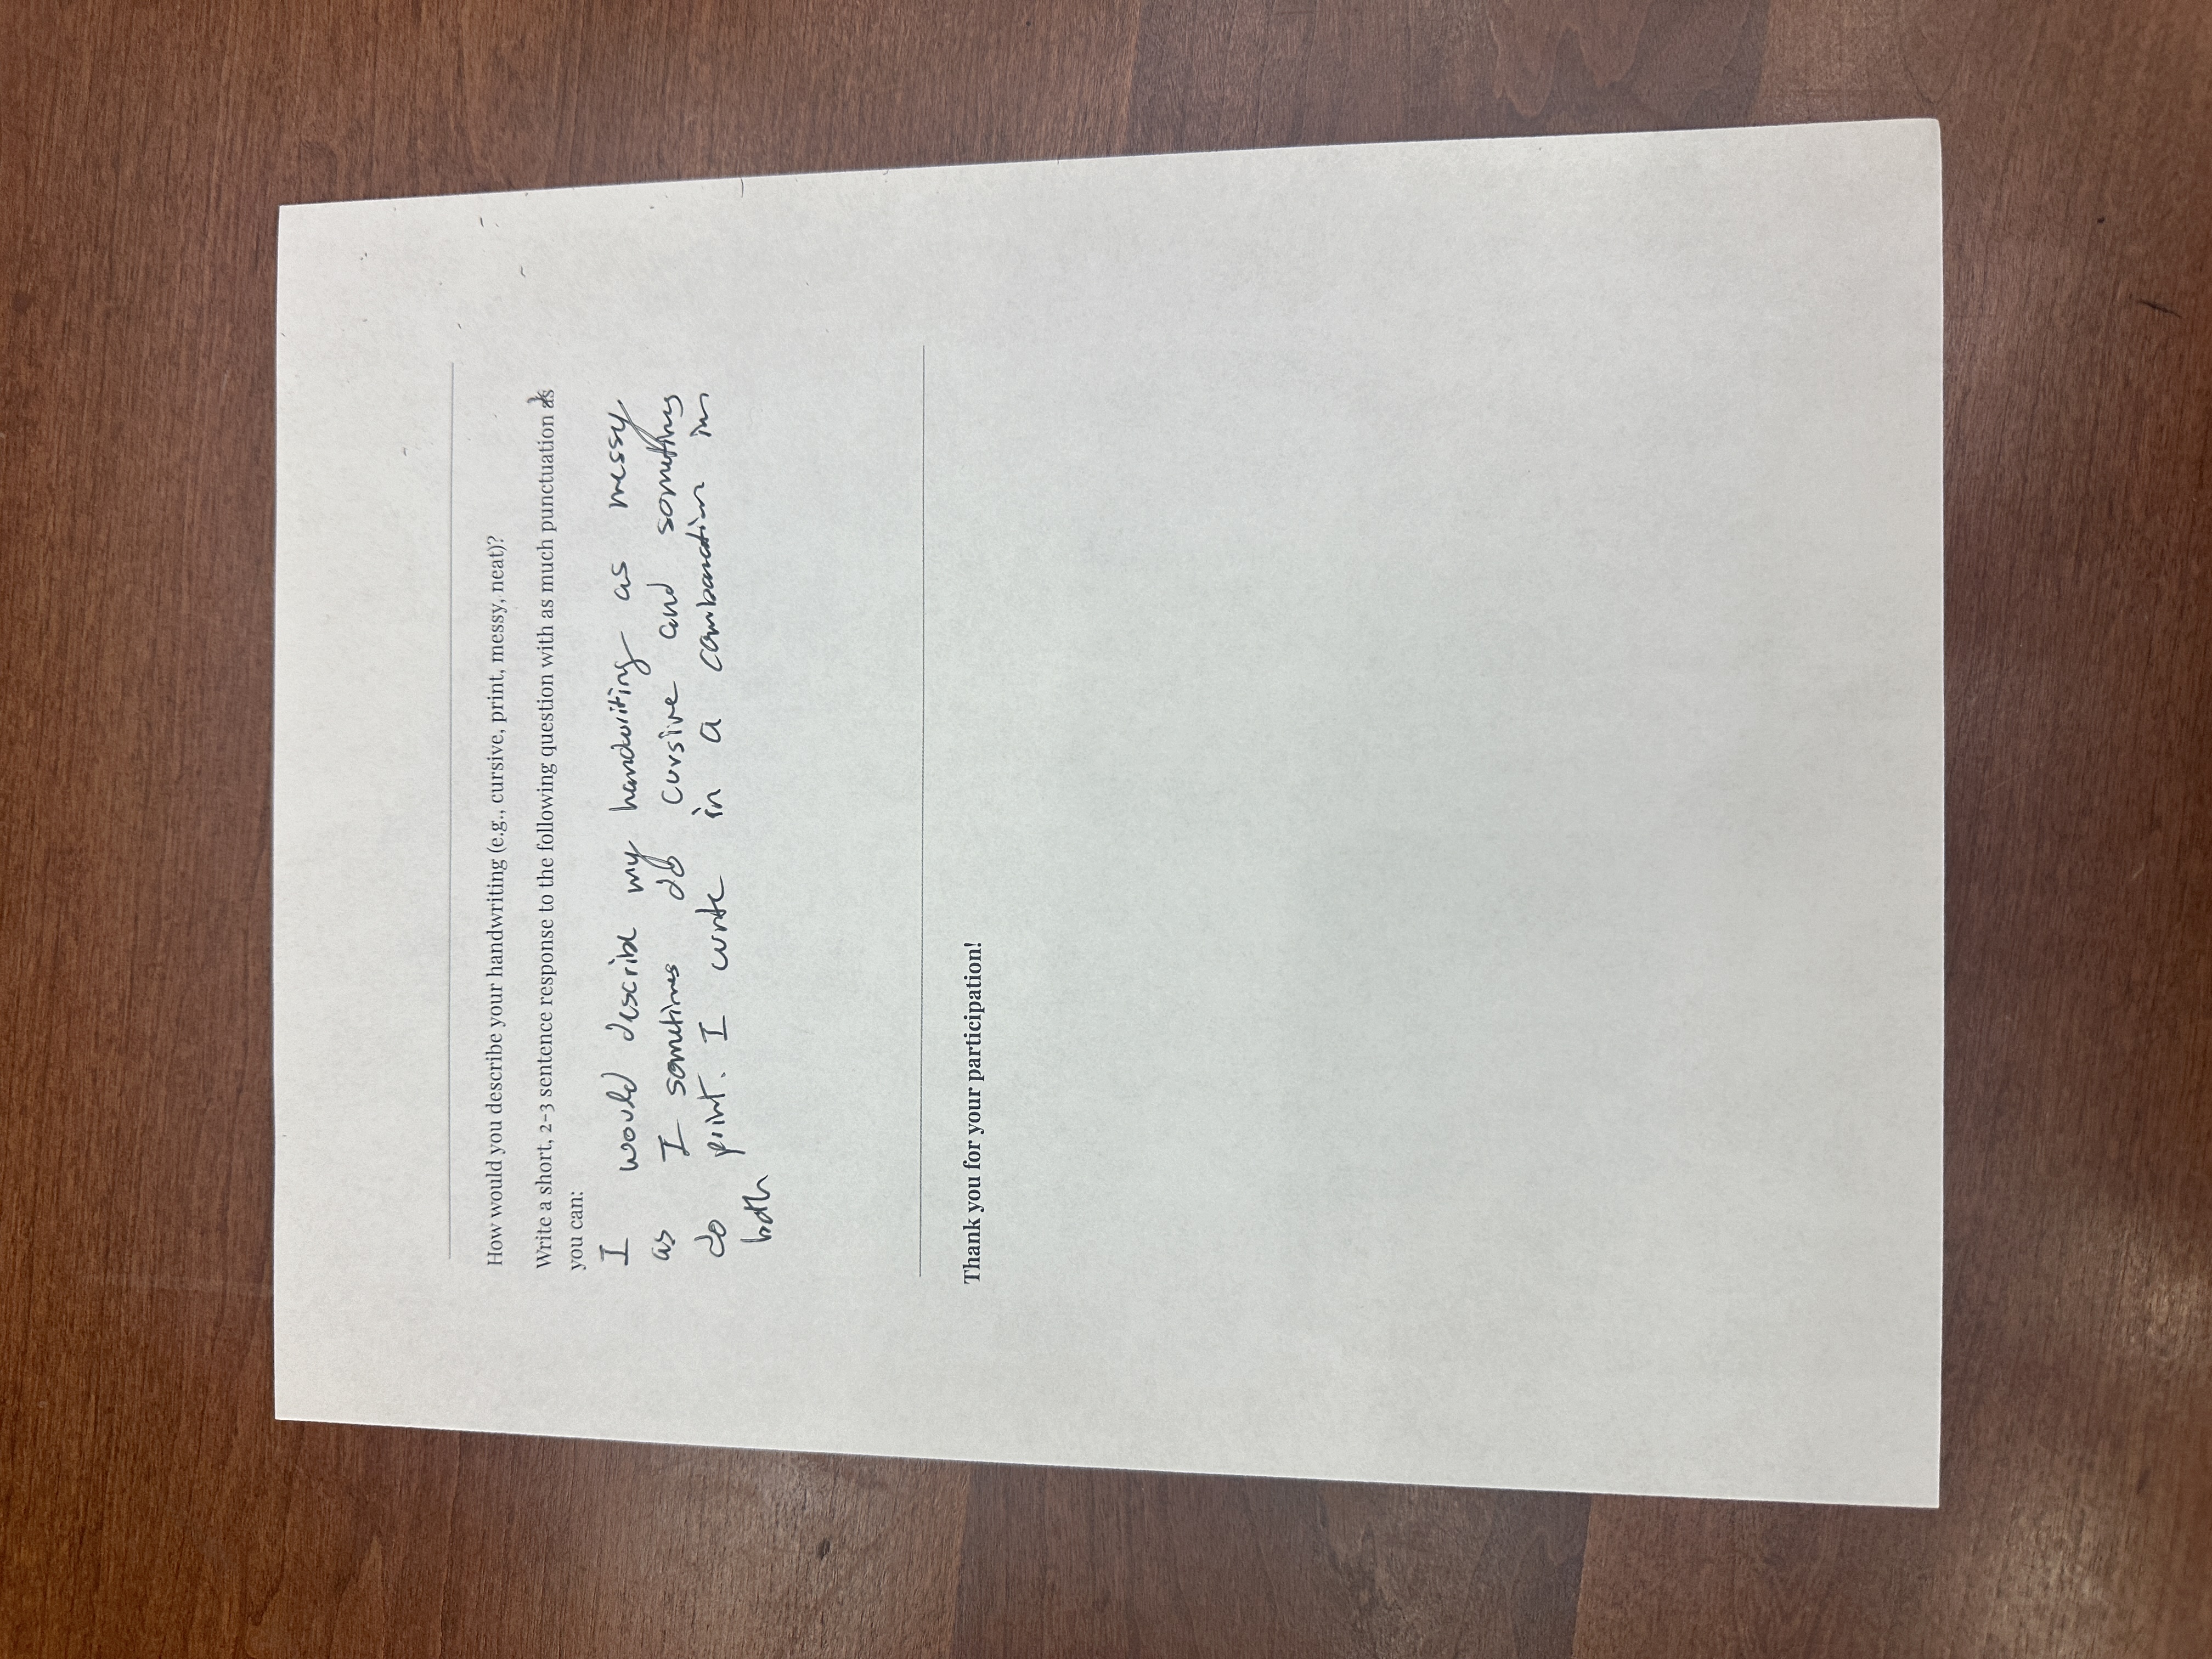 How would you describe your handwriting (e.g., cursive, print, messy, neat)?
Write a short, 2-3 sentence response to the following question with as much punctuation as
you can:
I would describe my handwriting as messy
as I sometimes do cursive and sometimes
do print. I write in a combanation in
both
Thank you for your participation!